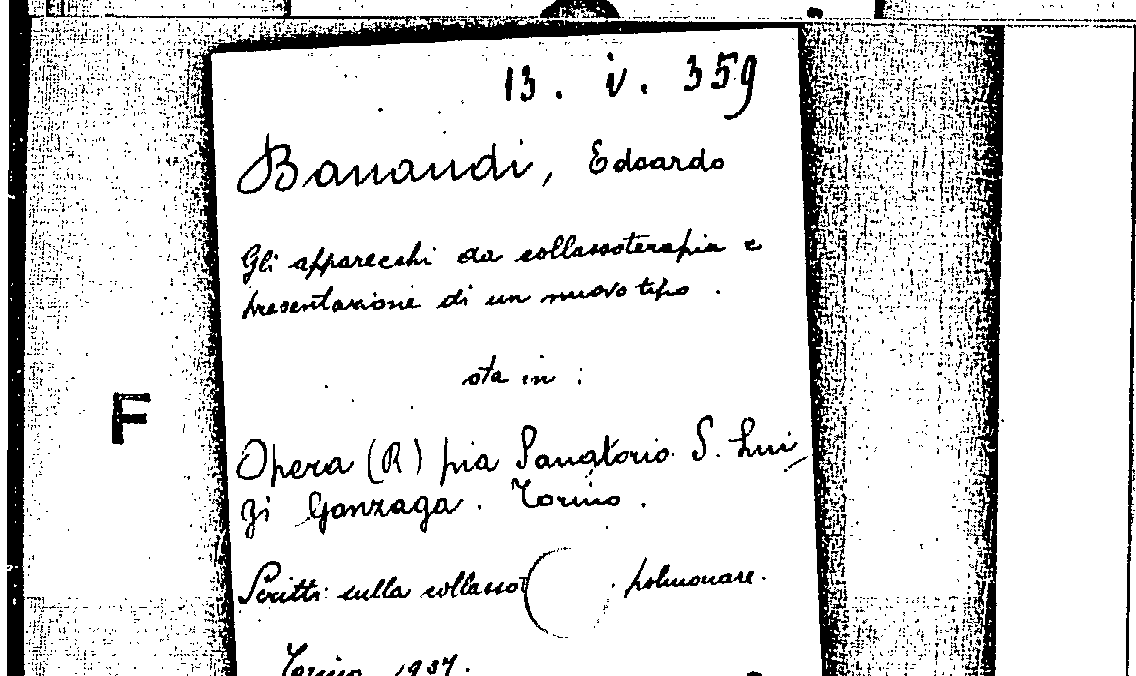 13. iv. 359
Banaudi, Edoardo
Gli apparecchi da collassoterapia e
presentazione di un nuovo tipo.
sta in:
F
Opera (R) pia Sanatorio S. Lui
gi Gonzaga. Torino.
Scritti sulla collasso polmonare.
Torino 1937.